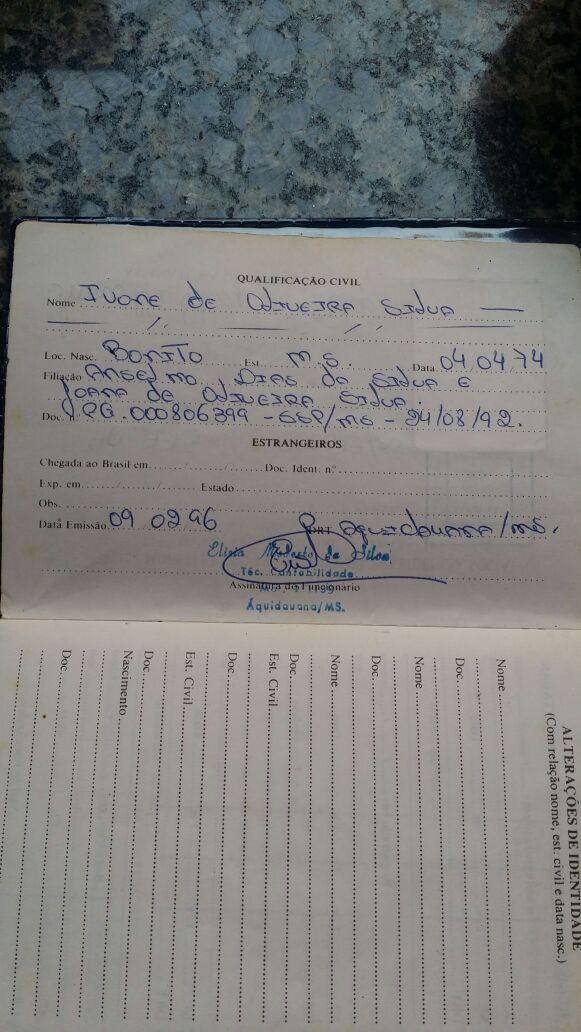 QUALIFICAÇÃO CIVIL
Nome IVONE DE OLIVEIRA SILVA
Loc. Nasc. BONITO Est. M.S. Data 04/04/74
Filiação ANSELMO DIAS DA SILVA E
JOANA DE OLIVEIRA SILVA
Doc. n.º RG.000806399 - SSP/MS - 24/08/92.
ESTRANGEIROS
Chegada ao Brasil em / / Doc. Ident. n.º
Exp. em / / Estado
Obs.
Data Emissão 09 02 96 DRT AQUIDAUANA/MS.
Elisia Modesto da Silva
Téc. Contabilidade
Assinatura do Funcionário
Aquidauana/MS.
ALTERAÇÕES DE IDENTIDADE
(Com relação nome, est. civil e data nasc.)
Nome
Doc.
Nome
Doc.
Nome
Doc.
Est. Civil
Doc.
Est. Civil
Doc.
Nascimento
Doc.